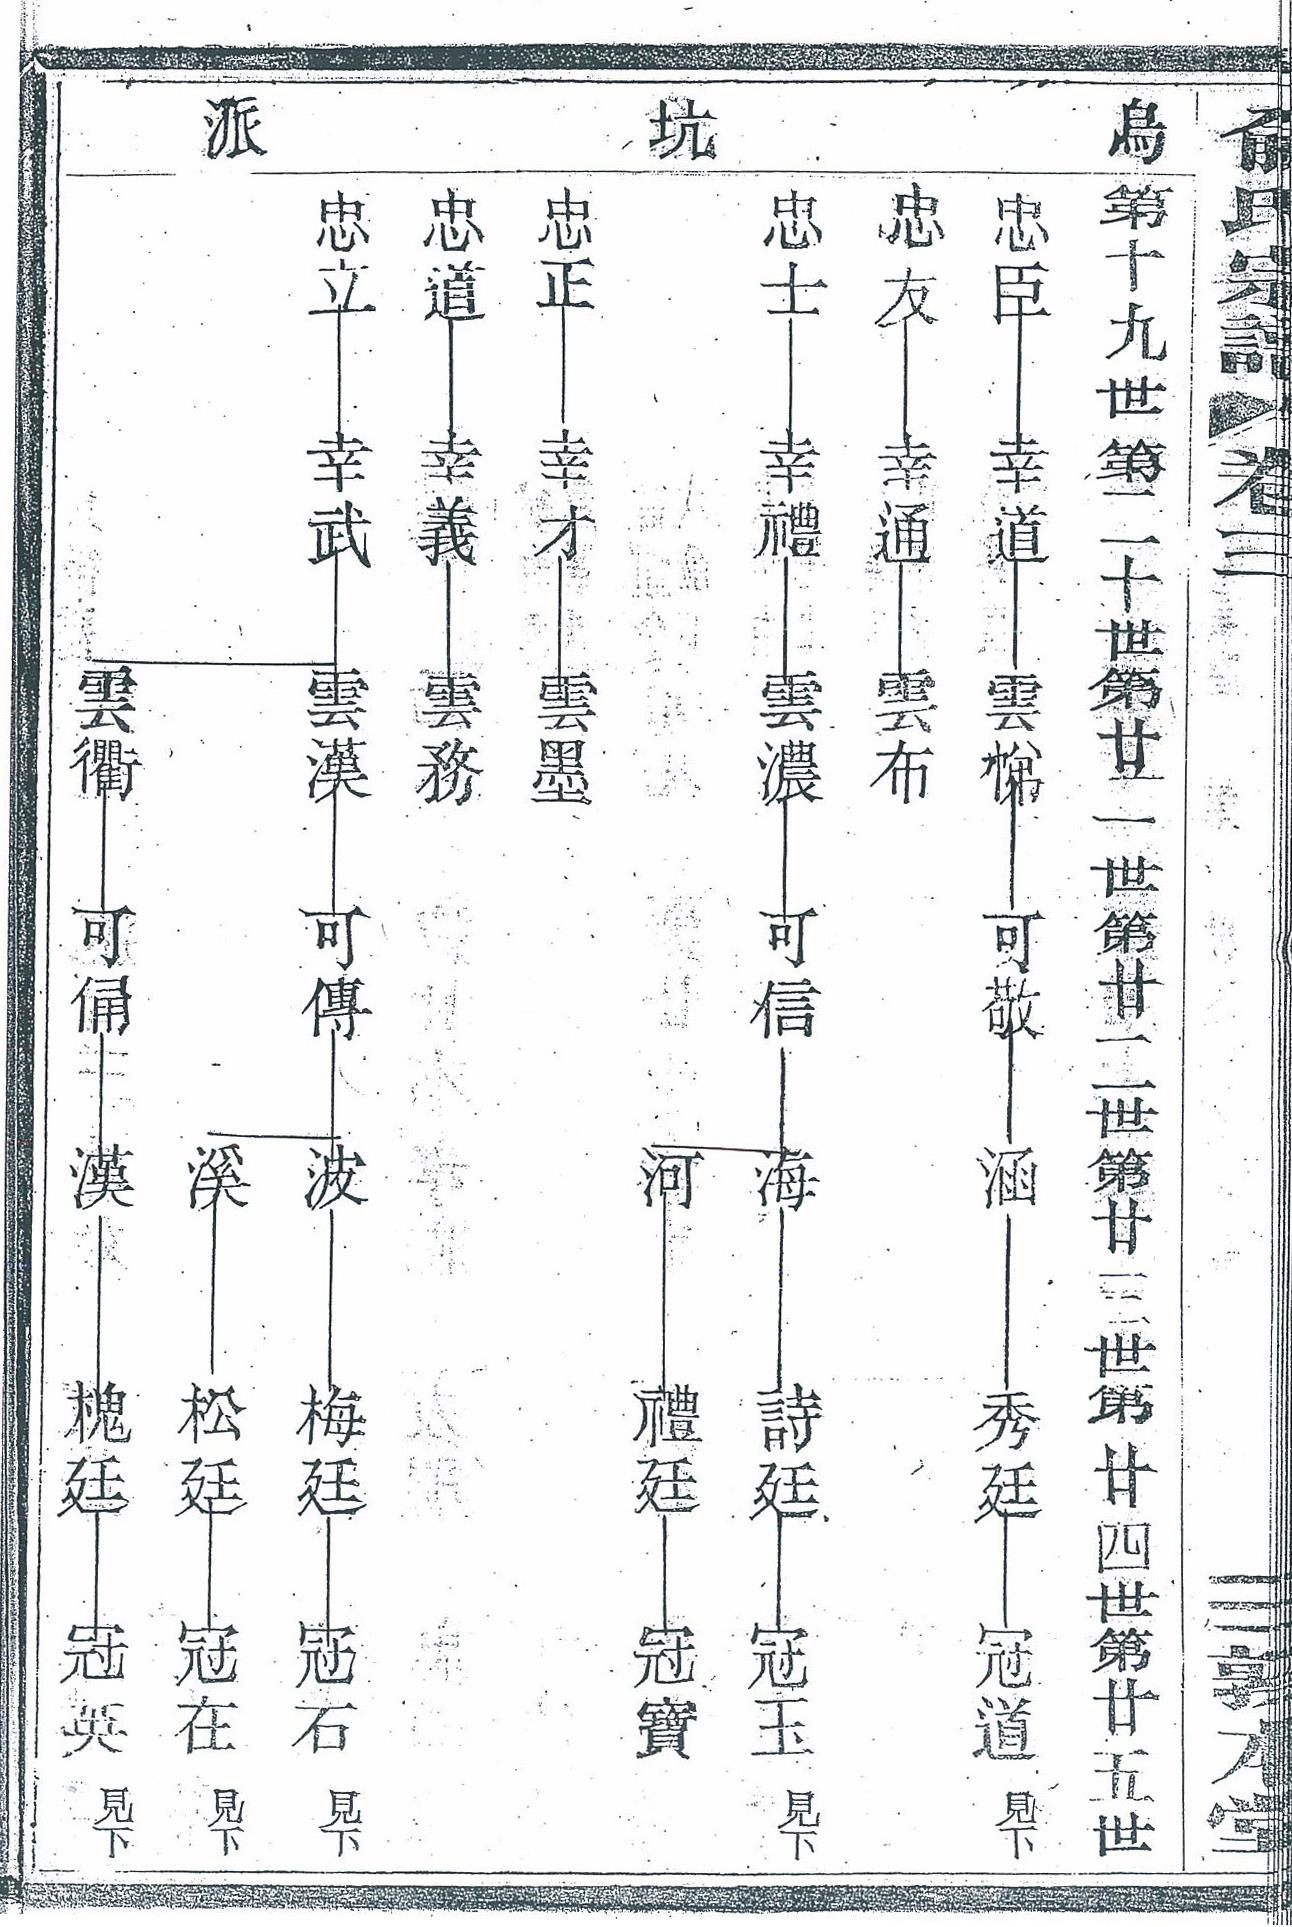 俞氏宗譜 卷三 三 敦本堂
烏坑派
第十九世 第二十世 第廿一世 第廿二世 第廿三世 第廿四世 第廿五世
忠臣 幸道 雲梯 可敬 涵 秀廷 冠道 見下
忠友 幸通 雲布
忠士 幸禮 雲濃 可信 海 詩廷 冠玉 見下
河 禮廷 冠寶
忠正 幸才 雲墨
忠道 幸義 雲務
忠立 幸武 雲漢 可傳 波 梅廷 冠石 見下
溪 松廷 冠在 見下
雲衢 可俑 漢 槐廷 冠英 見下